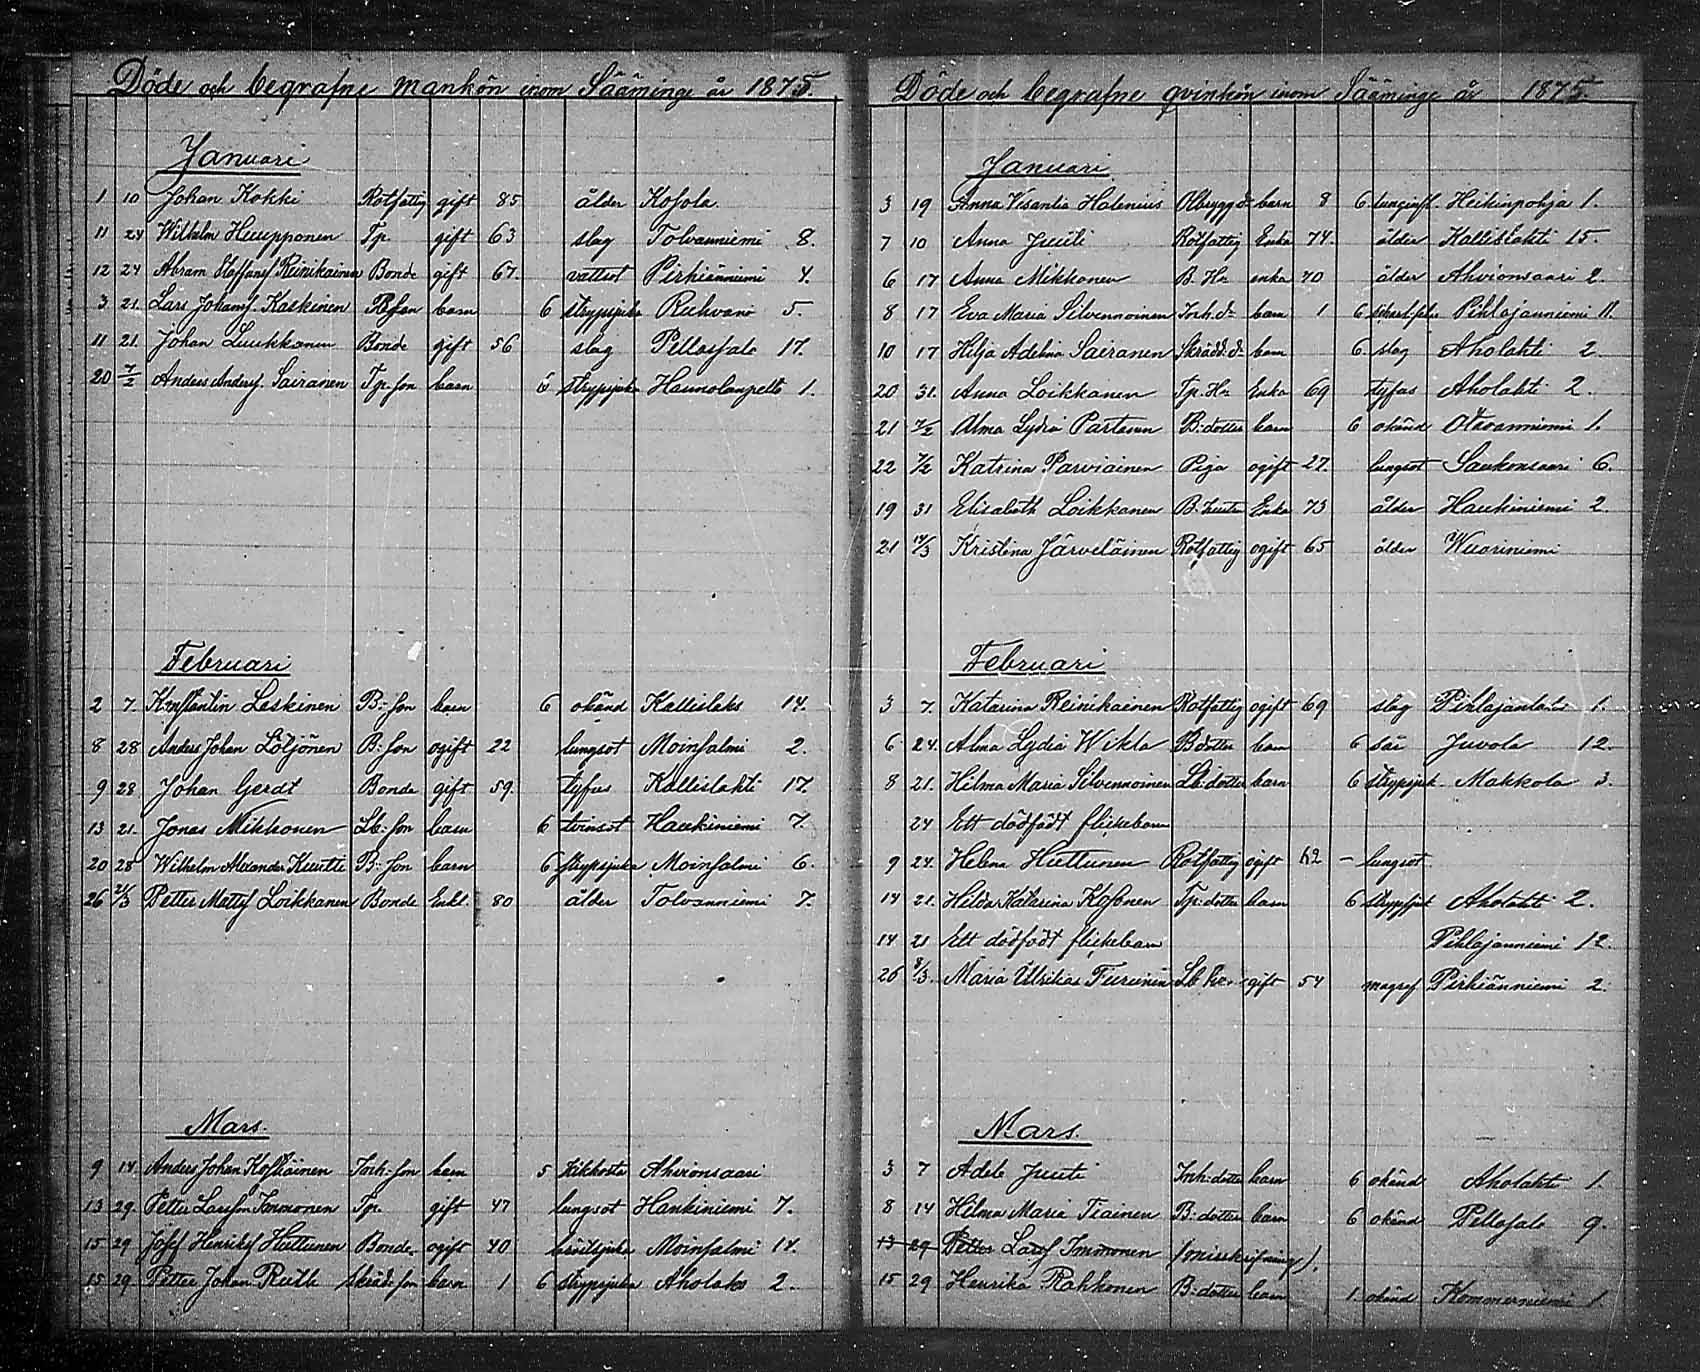 Döde och begrafne mankön inom Sääminge år 1875.
Januari
1 10 Johan Kokki Rotfattig gift 85 ålder Kosola
11 24 Wilhelm Huupponen Tp. gift 63 slag Tolvanniemi 8.
12 24 Abram Staffansf Reinikainen Bonde gift 67. vattsot Pirhiänniemi 4.
3 21. Lars Johansf Kaskinen barn 6 strypsjuka Ruhvana 5.
11 21. Johan Luukkonen Bonde gift 56 slag Pellossalo 17.
20 7/2 Anders Andersf Sairanen Tp. son barn 6 strypsjuka Haunolanpelto 1.
Februari
2 7. Konstantin Laskinen B: son barn 6 okänd Kallislaks 14.
8 28 Anders Johan Löljönen B: son ogift 22 lungsot Moinsalmi 2.
9 28 Johan Gerdt Bonde gift 59. tyfus Kallislahti 17.
13 21. Jonas Mikkonen Lb: son barn 6 tvinsot Haukiniemi 7.
20 28 Wilhelm Alexander Kuutti B: son barn 6 strypsjuka Moinsalmi 6.
26 21/3 Petter Mattsf Loikkanen Bonde Enkl. 80 ålder Tolvanniemi 7.
Mars.
9 14. Anders Johan Koskiainen Inh: son barn 5 kikhosta Ahvionsaari
13 29. Petter Larsson Immonen Tp. gift 47 lungsot Haukiniemi 7.
15 29 Josef Henriksf Huttunen Bonde. ogift 40 bröstsjuka Moinsalmi 14.
15 29 Petter Johan Ruth Skrädd: son barn 1 6 strypsjuka Aholaks 2.
Döde och begrafne qvinkön inom Sääminge år 1875.
Januari
3 19 Anna Vesantia Halenius Ölbrygg d: barn 8 6 lunginfl. Heikinpohja 1.
7 10 Anna Juuti Rotfattig Enka 74. ålder Kallislahti 15.
6 17 Anna Mikkonen B. Ha enka 70 ålder Ahvionsaari 2.
8 17 Eva Maria Silvennoinen Inh. d: barn 1 6 Pihlajanniemi 11.
10 17 Hilja Adelina Sairanen Skrädd. d: barn 6 slag Aholahti 2.
20 31. Anna Loikkanen Tp. Ha Enka 69 tyfus Aholahti 2.
21 7/2 Alma Lydia Partanen B: dotter barn 6 okänd Otavanniemi 1.
22 7/2 Katrina Parviainen Piga ogift 27. lungsot Saukonsaari 6.
19 31 Elisabeth Loikkanen B. Enka 73 ålder Haukiniemi 2
21 14/3 Kristina Järveläinen Rotfattig ogift 65 ålder Wuoriniemi
Februari
3 7. Katarina Reinikainen Rotfattig ogift 69 slag Pihlajanlaks 1.
6 24. Alma Lydia Wikla B dotter barn 6 sår Juvola 12.
8 21. Hilma Maria Silvennoinen Lb: dotter barn 6 strypsjuk. Makkola 3.
24 Ett dödfödt flickebarn
9 24. Helena Huttunen Rotfattig ogift 62 – lungsot
14 21. Hilda Katarina Kosonen Tp: dotter barn 6 strypsjuk Aholahti 2.
14 21 Ett dödfödt flickebarn Pihlajanniemi 12.
26 8/3. Maria Ulrika Turunen Lb. hu. gift 54 magref Pirhiänniemi 2.
Mars.
3 7 Adele Juuti Inh: dotter barn 6 okänd Aholahti 1.
8 14 Hilma Maria Tiainen B: dotter barn 6 okänd Pellosalo 9.
13 29 Petter Larsf Immonen (misskrifning).
15 29 Henrika Rahkonen B: dotter barn 1 okänd Kommerniemi 1.